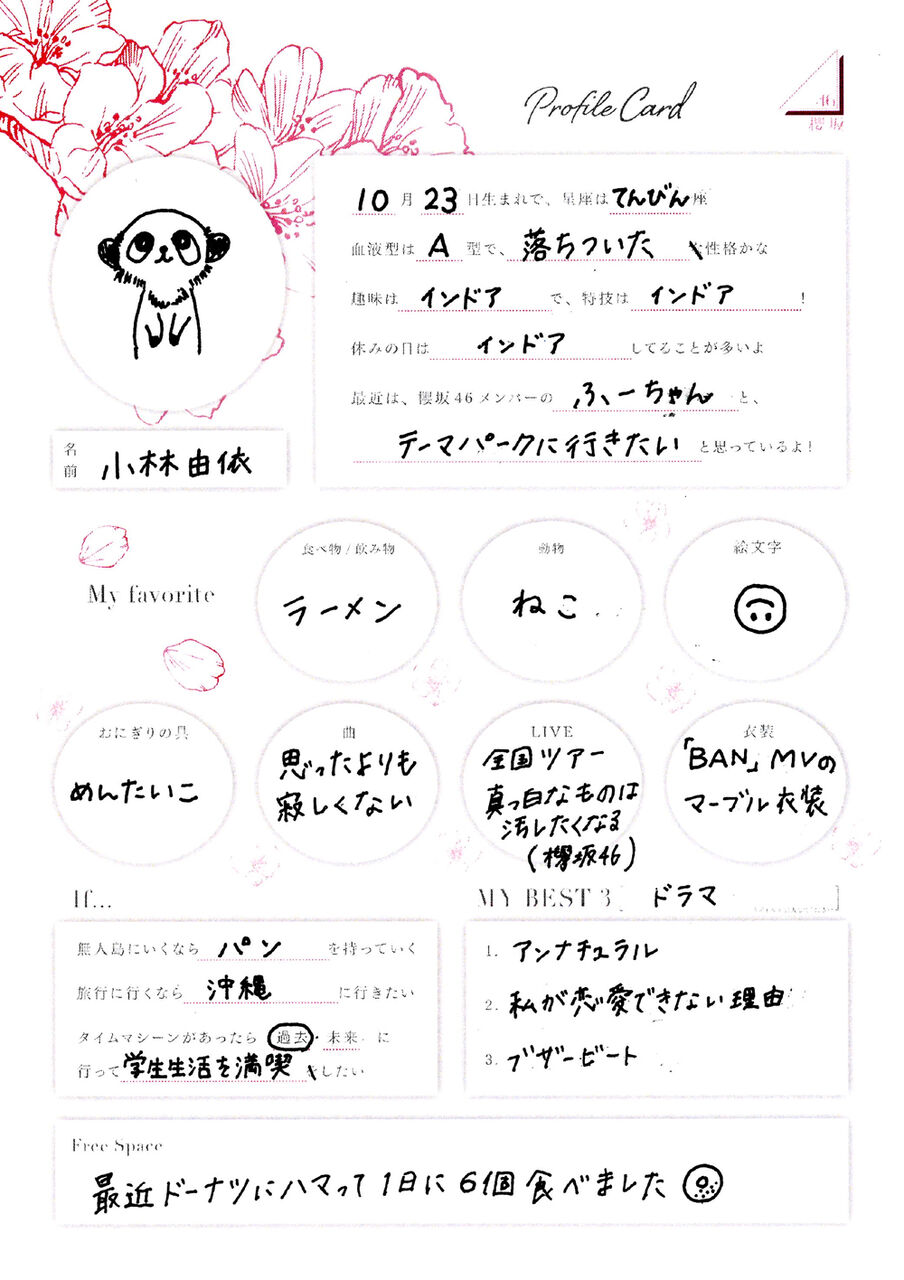 Profile Card
46
櫻坂
10月23日生まれで、星座はてんびん座
血液型はA型で、落ちついた性格かな
趣味はインドアで、特技はインドア!
休みの日はインドアしてることが多いよ
最近は、櫻坂46メンバーのふーちゃんと、
テーマパークに行きたいと思っているよ!
名前 小林由依
My favorite
食べ物/飲み物
ラーメン
動物
ねこ
絵文字
おにぎりの具
めんたいこ
曲
思ったよりも
寂しくない
LIVE
全国ツアー
真っ白なものは
汚したくなる
(欅坂46)
衣装
「BAN」MVの
マーブル衣装
If...
無人島にいくならパンを持っていく
旅行に行くなら沖縄に行きたい
タイムマシーンがあったら過去・未来に
行って学生生活を満喫したい
MY BEST 3 [ドラマ]
1. アンナチュラル
2. 私が恋愛できない理由
3. ブザービート
Free Space
最近ドーナツにハマって1日に6個食べました